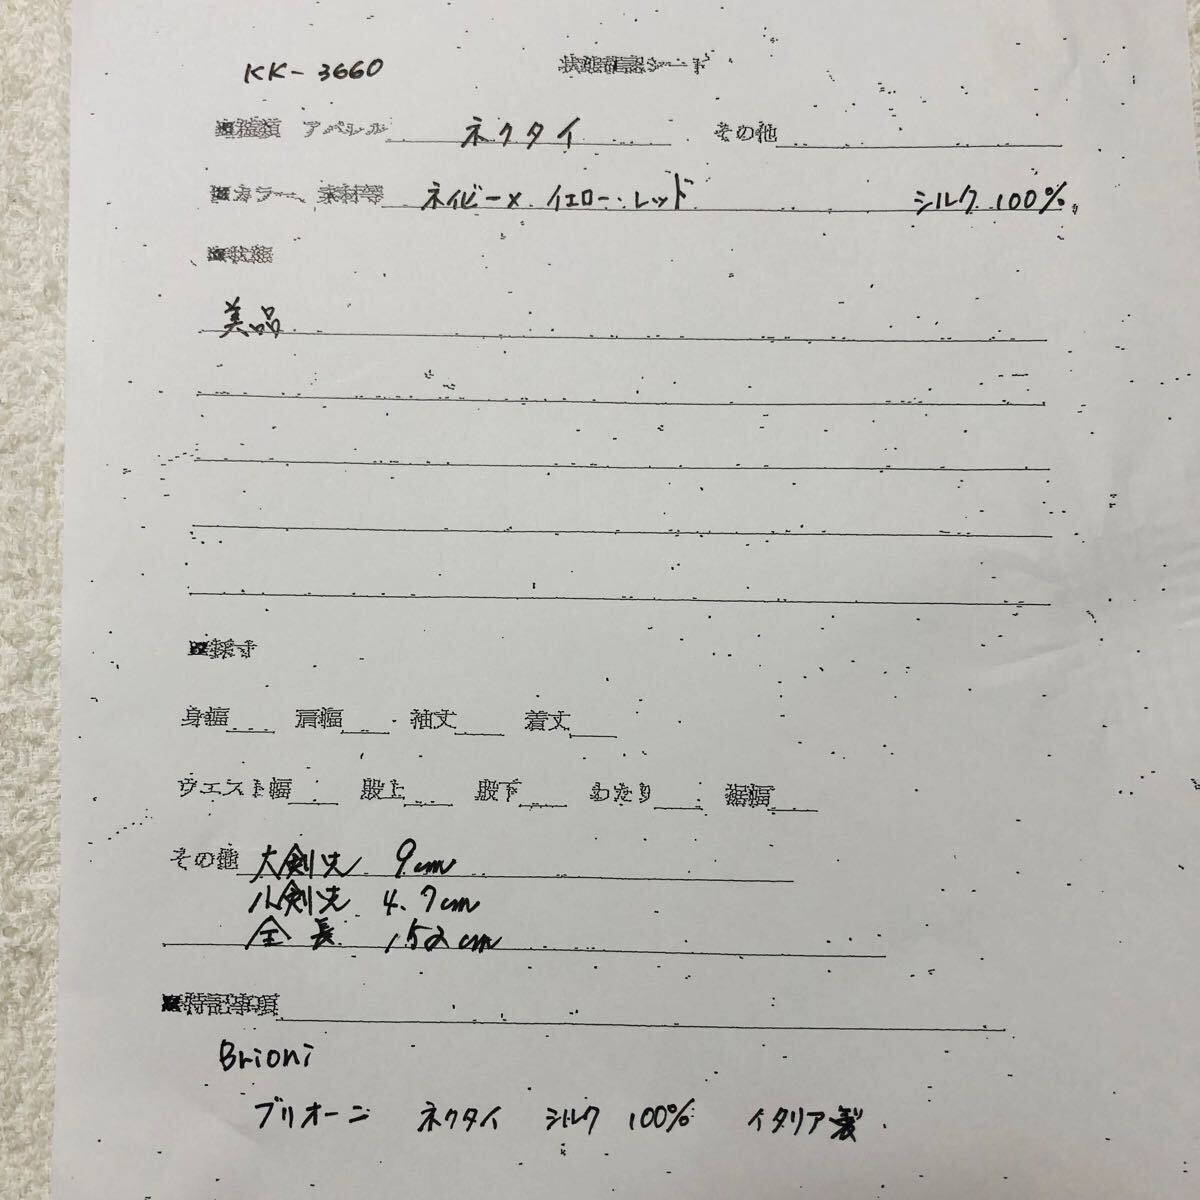 KK-3660 状態確認シート
■種類 アパレル ネクタイ その他
■カラー、素材等 ネイビー× イエロー・レッド シルク 100%
■状態
美品
■採寸
身幅 肩幅 袖丈 着丈
ウエスト幅 股上 股下 わたり 裾幅
その他 大剣先 9cm
小剣先 4.7cm
全長 152cm
■特記事項
Brioni
ブリオーニ ネクタイ シルク 100% イタリア製